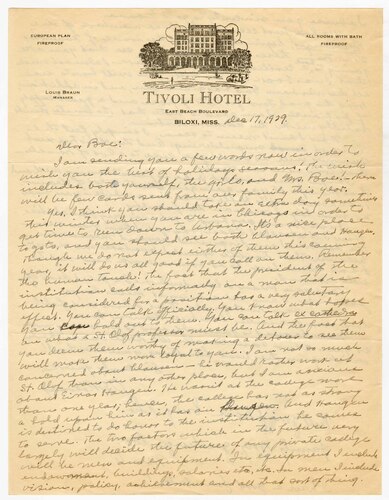 EUROPEAN PLAN
FIREPROOF
ALL ROOMS WITH BATH
FIREPROOF
LOUIS BRAUN
MANAGER
TIVOLI HOTEL
EAST BEACH BOULEVARD
BILOXI, MISS. Dec 17, 1929.
Dear Boe:
I am sending you a few words now in order to
wish you the best of holiday seasons! The wish
includes both yourself, the girls, and Mrs. Boe. There
will be few cards sent from my family this year.
Yes, I think you should take an extra day sometime
this winter when you are in Chicago in order to
get time to run down to Urbana. It's a wise place
to go to, and you should see both Clausen and Haugen.
Though we do not expect either of them this coming
year, it will do us all good if you call on them. Remember
the human touch! The fact that the president of the
institution calls informally on a man that is
being considered for a position has a very salutary
effect. You can talk officially. You know what hopes
you can hold out to them. You can talk ex cathedra
on what a St. Olaf professor must be. And the fact that
you deem them worthy of making a detour to see them
will make them more loyal to you. I am not so much
concerned about Clausen — he would rather work at
St. Olaf than in any other place, but I am anxious
about Einar Haugen. He wasn't at the college more
than one year, hence, the college has not as strong
a hold upon him as it has on Clausen. And Haugen
is destined to do honor to the institution he comes
to serve. The two factors which in the future very
largely will decide the future of any private college
will be men and equipment. In equipment I include
endowment, buildings, salaries, etc. etc. In men I include
vision, policy, achievement and all that sort of thing.